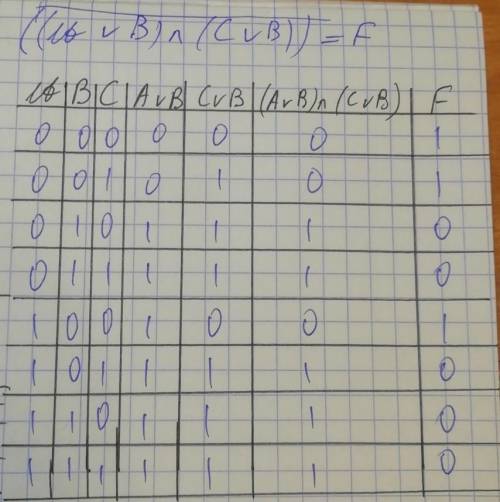 ((A v B) ∧ (C v B)) = F
A B C A v B C v B (A v B) ∧ (C v B) F
0 0 0 0 0 0 1
0 0 1 0 1 0 1
0 1 0 1 1 1 0
0 1 1 1 1 1 0
1 0 0 1 0 0 1
1 0 1 1 1 1 0
1 1 0 1 1 1 0
1 1 1 1 1 1 0